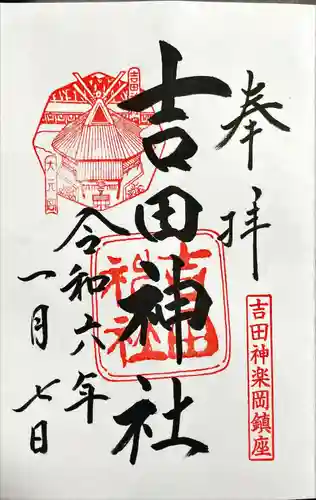 奉拝
吉田神楽岡鎮座
吉田神社
吉田神社
大元宮
令和六年
一月七日